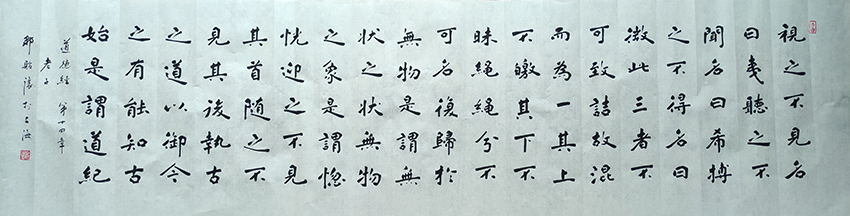 視之不見名
曰夷聽之不
聞名曰希搏
之不得名曰
微此三者不
可致詰故混
而為一其上
不皦其下不
昧繩繩兮不
可名復歸於
無物是謂無
狀之狀無物
之象是謂惚
恍迎之不見
其首随之不
見其後執古
之道以御今
之有能知古
始是謂道紀
道德經 第十四章
老子
於上海